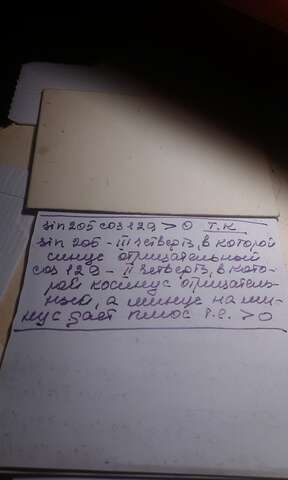 sin 205 cos 129 > 0 т.к
sin 205 - III четверть, в которой
синус отрицательный
cos 129 - II четверть, в кото-
рой косинус отрицатель-
ный, а минус на ми-
нус даёт плюс т.е. > 0